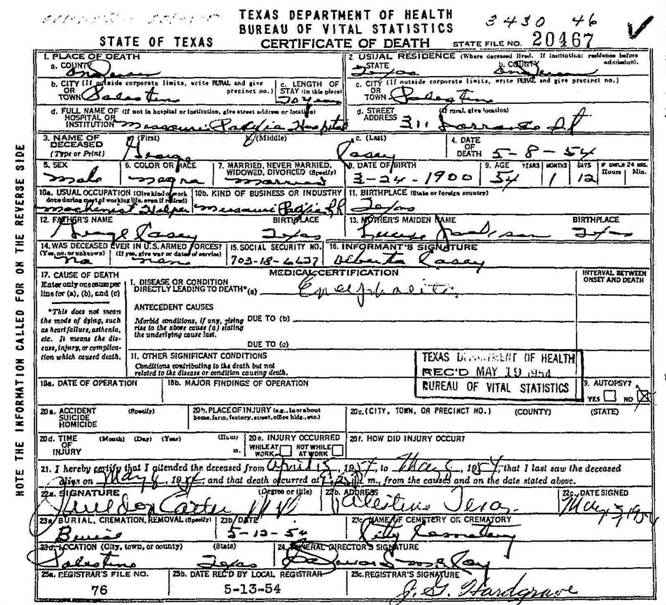 TEXAS DEPARTMENT OF HEALTH
BUREAU OF VITAL STATISTICS
3430 46
STATE OF TEXAS CERTIFICATE OF DEATH STATE FILE NO. 20467
1. PLACE OF DEATH
a. COUNTY Anderson
2. USUAL RESIDENCE (Where deceased lived. If institution: residence before admission).
a. STATE Texas b. COUNTY Anderson
b. CITY (If outside corporate limits, write RURAL and give precinct no.)
OR TOWN Palestine
c. LENGTH OF STAY (in this place)
c. CITY (If outside corporate limits, write RURAL and give precinct no.)
OR TOWN Palestine
d. FULL NAME OF (If not in hospital or institution, give street address or location)
HOSPITAL OR INSTITUTION Missouri Pacific Hospital
d. STREET ADDRESS (If rural, give location)
311 St
3. NAME OF DECEASED (Type or Print)
a. (First) b. (Middle) c. (Last)
George Casey
4. DATE OF DEATH 5-8-54
5. SEX Male
6. COLOR OR RACE Negro
7. MARRIED, NEVER MARRIED, WIDOWED, DIVORCED (Specify) Married
8. DATE OF BIRTH 3-24-1900
9. AGE YEARS 54 MONTHS 1 DAYS 12 IF UNDER 24 HRS. Hours Min.
10a. USUAL OCCUPATION (Give kind of work done during most of working life, even if retired)
Machinist Helper
10b. KIND OF BUSINESS OR INDUSTRY
Missouri Pacific RR
11. BIRTHPLACE (State or foreign country)
Texas
12. FATHER'S NAME BIRTHPLACE
George Casey Texas
13. MOTHER'S MAIDEN NAME BIRTHPLACE
Louise Jackson Texas
14. WAS DECEASED EVER IN U.S. ARMED FORCES?
(Yes, no, or unknown) (If yes, give war or dates of service)
no
15. SOCIAL SECURITY NO.
703-18-6637
16. INFORMANT'S SIGNATURE
Alberta Casey
17. CAUSE OF DEATH
Enter only one cause per line for (a), (b), and (c)
MEDICAL CERTIFICATION
INTERVAL BETWEEN ONSET AND DEATH
I. DISEASE OR CONDITION DIRECTLY LEADING TO DEATH* (a) Encephalitis
*This does not mean the mode of dying, such as heart failure, asthenia, etc. It means the disease, injury, or complication which caused death.
ANTECEDENT CAUSES
Morbid conditions, if any, giving rise to the above cause (a) stating the underlying cause last.
DUE TO (b)
DUE TO (c)
II. OTHER SIGNIFICANT CONDITIONS
Conditions contributing to the death but not related to the disease or condition causing death.
TEXAS DEPARTMENT OF HEALTH
REC'D MAY 19 1954
BUREAU OF VITAL STATISTICS
18a. DATE OF OPERATION
18b. MAJOR FINDINGS OF OPERATION
9. AUTOPSY?
YES NO X
20a. ACCIDENT SUICIDE HOMICIDE (Specify)
20b. PLACE OF INJURY (e.g., in or about home, farm, factory, street, office bldg., etc.)
20c. (CITY, TOWN, OR PRECINCT NO.) (COUNTY) (STATE)
20d. TIME OF INJURY (Month) (Day) (Year) (Hour) m.
20e. INJURY OCCURRED
WHILE AT WORK NOT WHILE AT WORK
20f. HOW DID INJURY OCCUR?
21. I hereby certify that I attended the deceased from April 15, 1954, to May 8, 1954, that I last saw the deceased
alive on May 8, 1954, and that death occurred at m., from the causes and on the date stated above.
22a. SIGNATURE (Degree or title)
Carter MD
22b. ADDRESS
Palestine Texas
22c. DATE SIGNED
23a. BURIAL, CREMATION, REMOVAL (Specify)
Burial
23b. DATE
5-12-54
23c. NAME OF CEMETERY OR CREMATORY
City Cemetery
23d. LOCATION (City, town, or county) (State)
Palestine Texas
24. FUNERAL DIRECTOR'S SIGNATURE
25a. REGISTRAR'S FILE NO.
76
25b. DATE REC'D BY LOCAL REGISTRAR
5-13-54
25c. REGISTRAR'S SIGNATURE
J. G. Hardgrave
NOTE THE INFORMATION CALLED FOR ON THE REVERSE SIDE